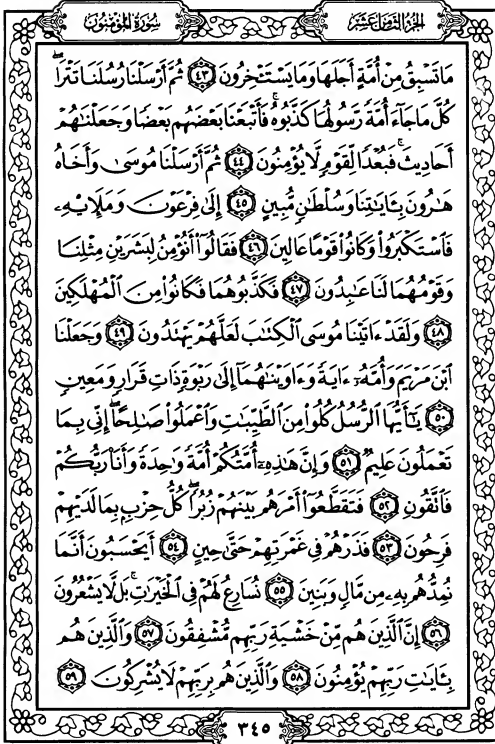 سُورَةُ المُؤْمِنُون
الجُزْءُ الثَّامِن عَشَر
مَا تَسْبِقُ مِنْ أُمَّةٍ أَجَلَهَا وَمَا يَسْتَـْٔخِرُونَ ٤٣ ثُمَّ أَرْسَلْنَا رُسُلَنَا تَتْرَاۖ
كُلَّ مَا جَآءَ أُمَّةً رَّسُولُهَا كَذَّبُوهُۚ فَأَتْبَعْنَا بَعْضَهُم بَعْضًا وَجَعَلْنَٰهُمْ
أَحَادِيثَۚ فَبُعْدًا لِّقَوْمٍ لَّا يُؤْمِنُونَ ٤٤ ثُمَّ أَرْسَلْنَا مُوسَىٰ وَأَخَاهُ
هَٰرُونَ بِـَٔايَٰتِنَا وَسُلْطَٰنٍ مُّبِينٍ ٤٥ إِلَىٰ فِرْعَوْنَ وَمَلَإِي۟هِۦ
فَٱسْتَكْبَرُوا۟ وَكَانُوا۟ قَوْمًا عَالِينَ ٤٦ فَقَالُوٓا۟ أَنُؤْمِنُ لِبَشَرَيْنِ مِثْلِنَا
وَقَوْمُهُمَا لَنَا عَٰبِدُونَ ٤٧ فَكَذَّبُوهُمَا فَكَانُوا۟ مِنَ ٱلْمُهْلَكِينَ
٤٨ وَلَقَدْ ءَاتَيْنَا مُوسَى ٱلْكِتَٰبَ لَعَلَّهُمْ يَهْتَدُونَ ٤٩ وَجَعَلْنَا
ٱبْنَ مَرْيَمَ وَأُمَّهُۥٓ ءَايَةً وَءَاوَيْنَٰهُمَآ إِلَىٰ رَبْوَةٍ ذَاتِ قَرَارٍ وَمَعِينٍ
٥٠ يَٰٓأَيُّهَا ٱلرُّسُلُ كُلُوا۟ مِنَ ٱلطَّيِّبَٰتِ وَٱعْمَلُوا۟ صَٰلِحًاۖ إِنِّى بِمَا
تَعْمَلُونَ عَلِيمٌ ٥١ وَإِنَّ هَٰذِهِۦٓ أُمَّتُكُمْ أُمَّةً وَٰحِدَةً وَأَنَا۠ رَبُّكُمْ
فَٱتَّقُونِ ٥٢ فَتَقَطَّعُوٓا۟ أَمْرَهُم بَيْنَهُمْ زُبُرًاۖ كُلُّ حِزْبٍۭ بِمَا لَدَيْهِمْ
فَرِحُونَ ٥٣ فَذَرْهُمْ فِى غَمْرَتِهِمْ حَتَّىٰ حِينٍ ٥٤ أَيَحْسَبُونَ أَنَّمَا
نُمِدُّهُم بِهِۦ مِن مَّالٍ وَبَنِينَ ٥٥ نُسَارِعُ لَهُمْ فِى ٱلْخَيْرَٰتِۚ بَل لَّا يَشْعُرُونَ
٥٦ إِنَّ ٱلَّذِينَ هُم مِّنْ خَشْيَةِ رَبِّهِم مُّشْفِقُونَ ٥٧ وَٱلَّذِينَ هُم
بِـَٔايَٰتِ رَبِّهِمْ يُؤْمِنُونَ ٥٨ وَٱلَّذِينَ هُم بِرَبِّهِمْ لَا يُشْرِكُونَ ٥٩
٣٤٥